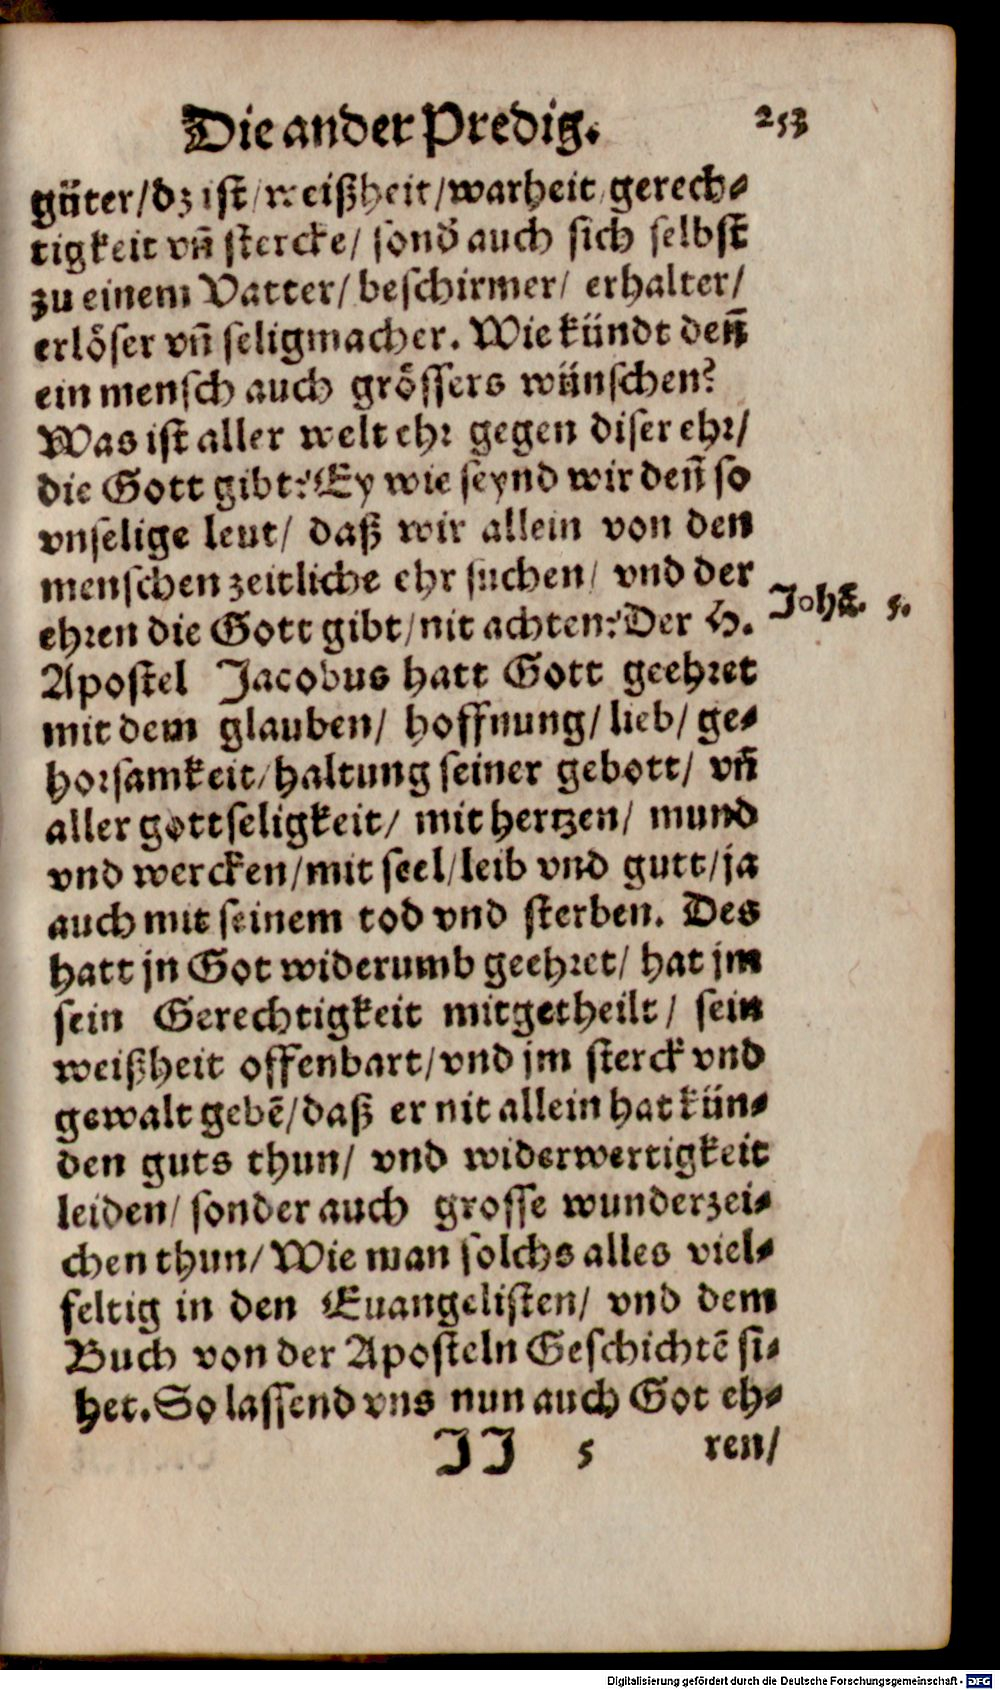 Die ander Predig. 253
güter/dz ist/weißheit/warheit/gerech-
tigkeit vn̄ stercke/ sond̄ auch sich selbst
zu einem Vatter/ beschirmer/ erhalter/
erlöser vn̄ seligmacher. Wie kündt deñ
ein mensch auch grössers wünschen?
Was ist aller welt ehr gegen diser ehr/
die Gott gibt? Ey wie seynd wir deñ so
vnselige leut/ daß wir allein von den
menschen zeitliche ehr suchen/ vnd der
ehren die Gott gibt/nit achten? Der H.
Johā. 5.
Apostel Jacobus hatt Gott geehret
mit dem glauben/ hoffnung/ lieb/ ge-
horsamkeit/haltung seiner gebott/ vn̄
aller gottseligkeit/ mit hertzen/ mund
vnd wercken/mit seel/leib vnd gutt/ja
auch mit seinem tod vnd sterben. Des
hatt jn Got widerumb geehret/ hat jm
sein Gerechtigkeit mitgetheilt/ sein
weißheit offenbart/vnd jm sterck vnd
gewalt gebē/daß er nit allein hat kün-
den guts thun/ vnd widerwertigkeit
leiden/ sonder auch grosse wunderzei-
chen thun/ Wie man solchs alles viel-
feltig in den Euangelisten/ vnd dem
Buch von der Aposteln Geschichtē si-
het. So lassend vns nun auch Got eh-
JJ 5 ren/
Digitalisierung gefördert durch die Deutsche Forschungsgemeinschaft - DFG